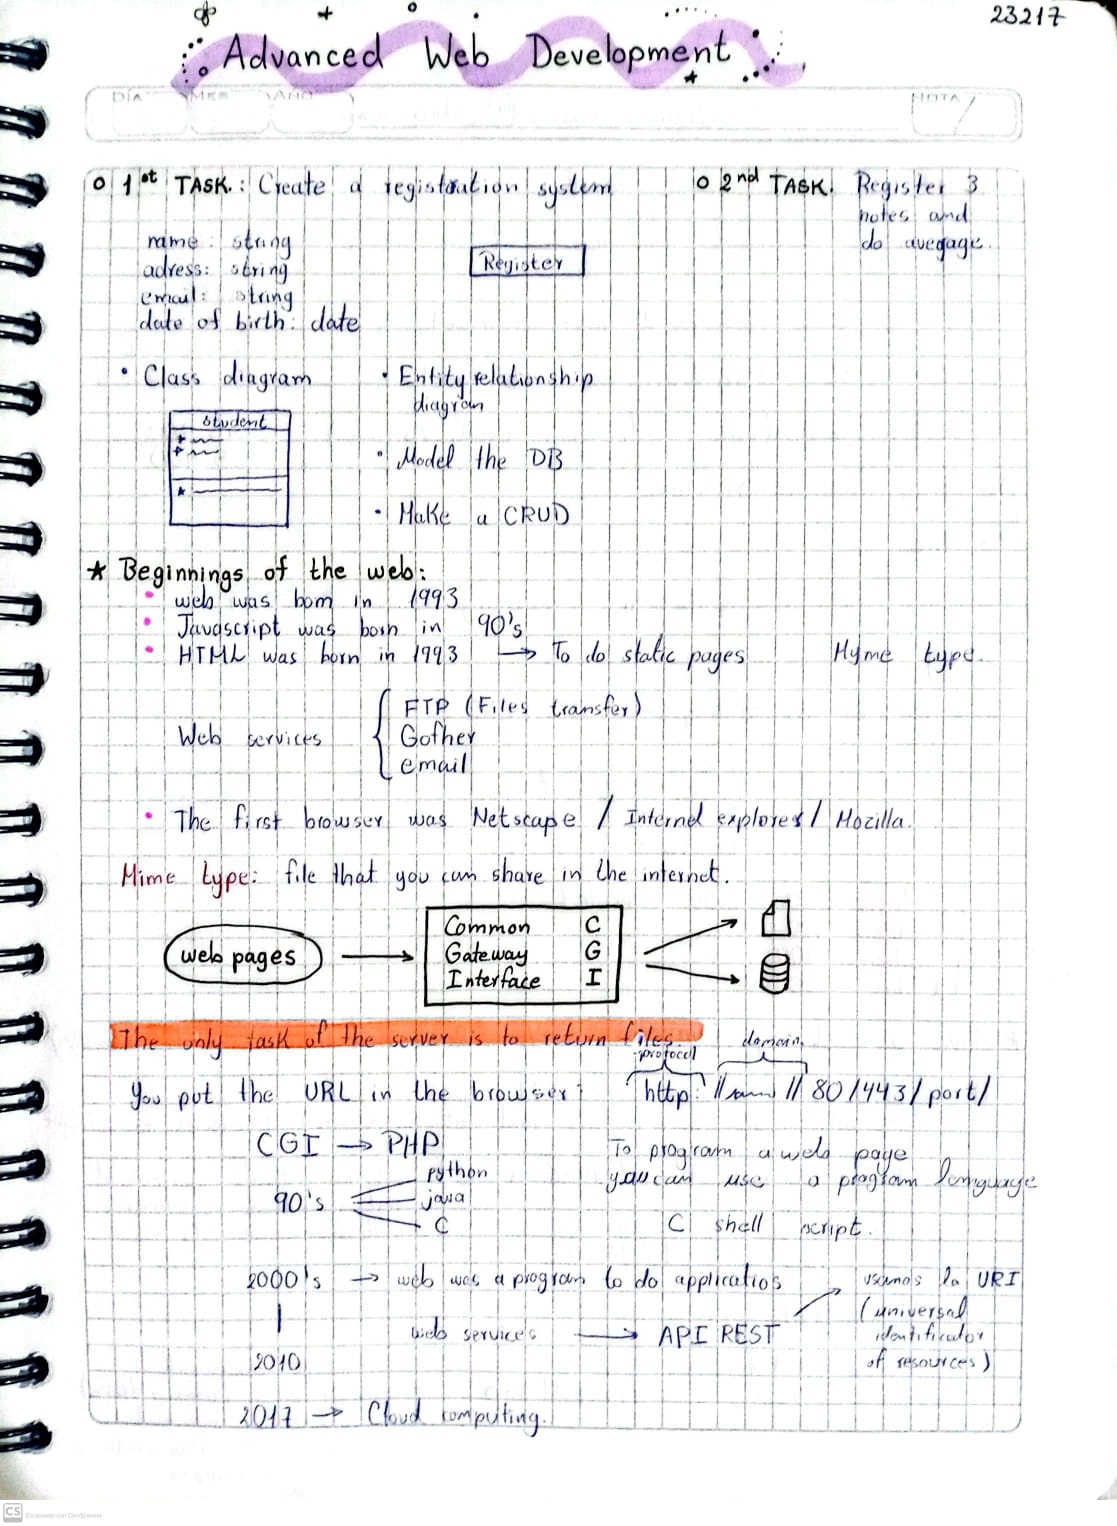 23217
Advanced Web Development
DÍA MES AÑO NOTA
o 1st TASK.: Create a registration system
o 2nd TASK. Register 3
notes and
do avegage.
name: string
adress: string
email: string
date of birth: date
Register
• Class diagram
• Entity relationship
diagram
Student
• Model the DB
• Make a CRUD
★ Beginnings of the web:
• web was born in 1993
• Javascript was born in 90's
• HTML was born in 1993 → To do static pages Myme type.
Web services { FTP (Files transfer)
Gofher
email
• The first browser was Netscape / Internd explorer / Mozilla.
Mime type: file that you can share in the internet.
web pages →
Common C
Gateway G
Interface I
The only task of the server is to return files.
protocol domain
You put the URL in the browser: http: // // 80/443/port/
CGI → PHP
90's python
java
C
To program a web page
you can use a program language
C shell script.
2000's → web was a program to do applicatios
web services → API REST
usamos la URI
(universal
identificator
of resources)
2010
2017 → Cloud computing.
CS Escaneado con CamScanner